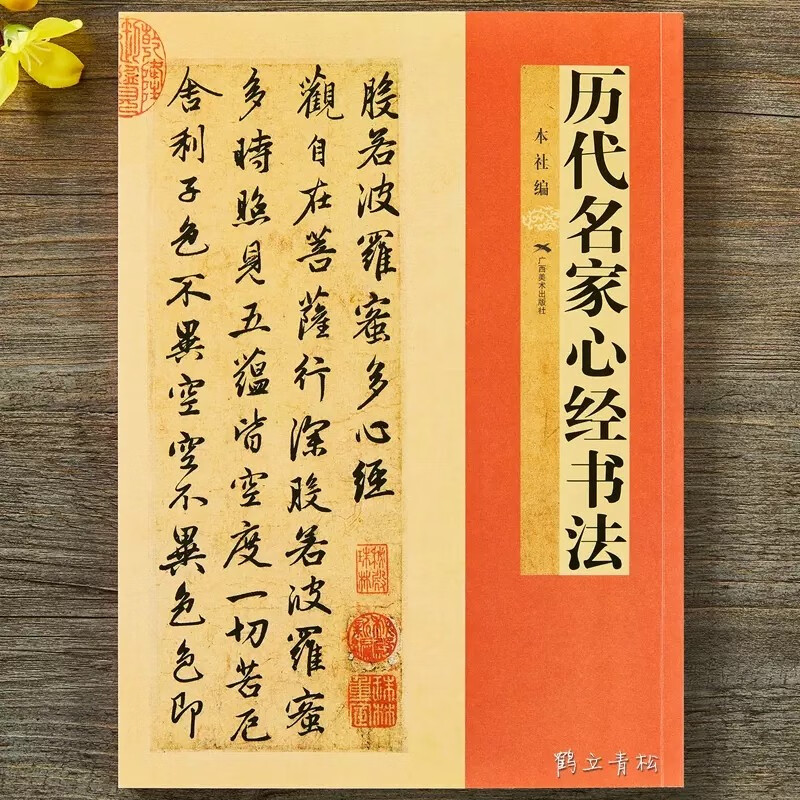 历代名家心经书法
本社编
广西美术出版社
般若波羅蜜多心經
觀自在菩薩行深般若波羅蜜
多時照見五蘊皆空度一切苦厄
舍利子色不異空空不異色色即
秘殿珠林
鹤立青松